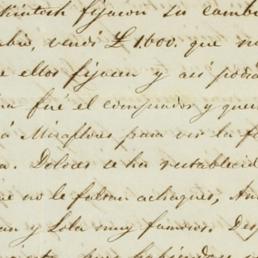 kintosh fijaron su cambi
bio, vendí £1,600. que no
e ellos fijasen y así podía
ina fué el comprador y que
á Miraflores para ver la f
a. Dolores se ha restablecid
ue no le faltan achaques, An
an y Lola muy famosos.